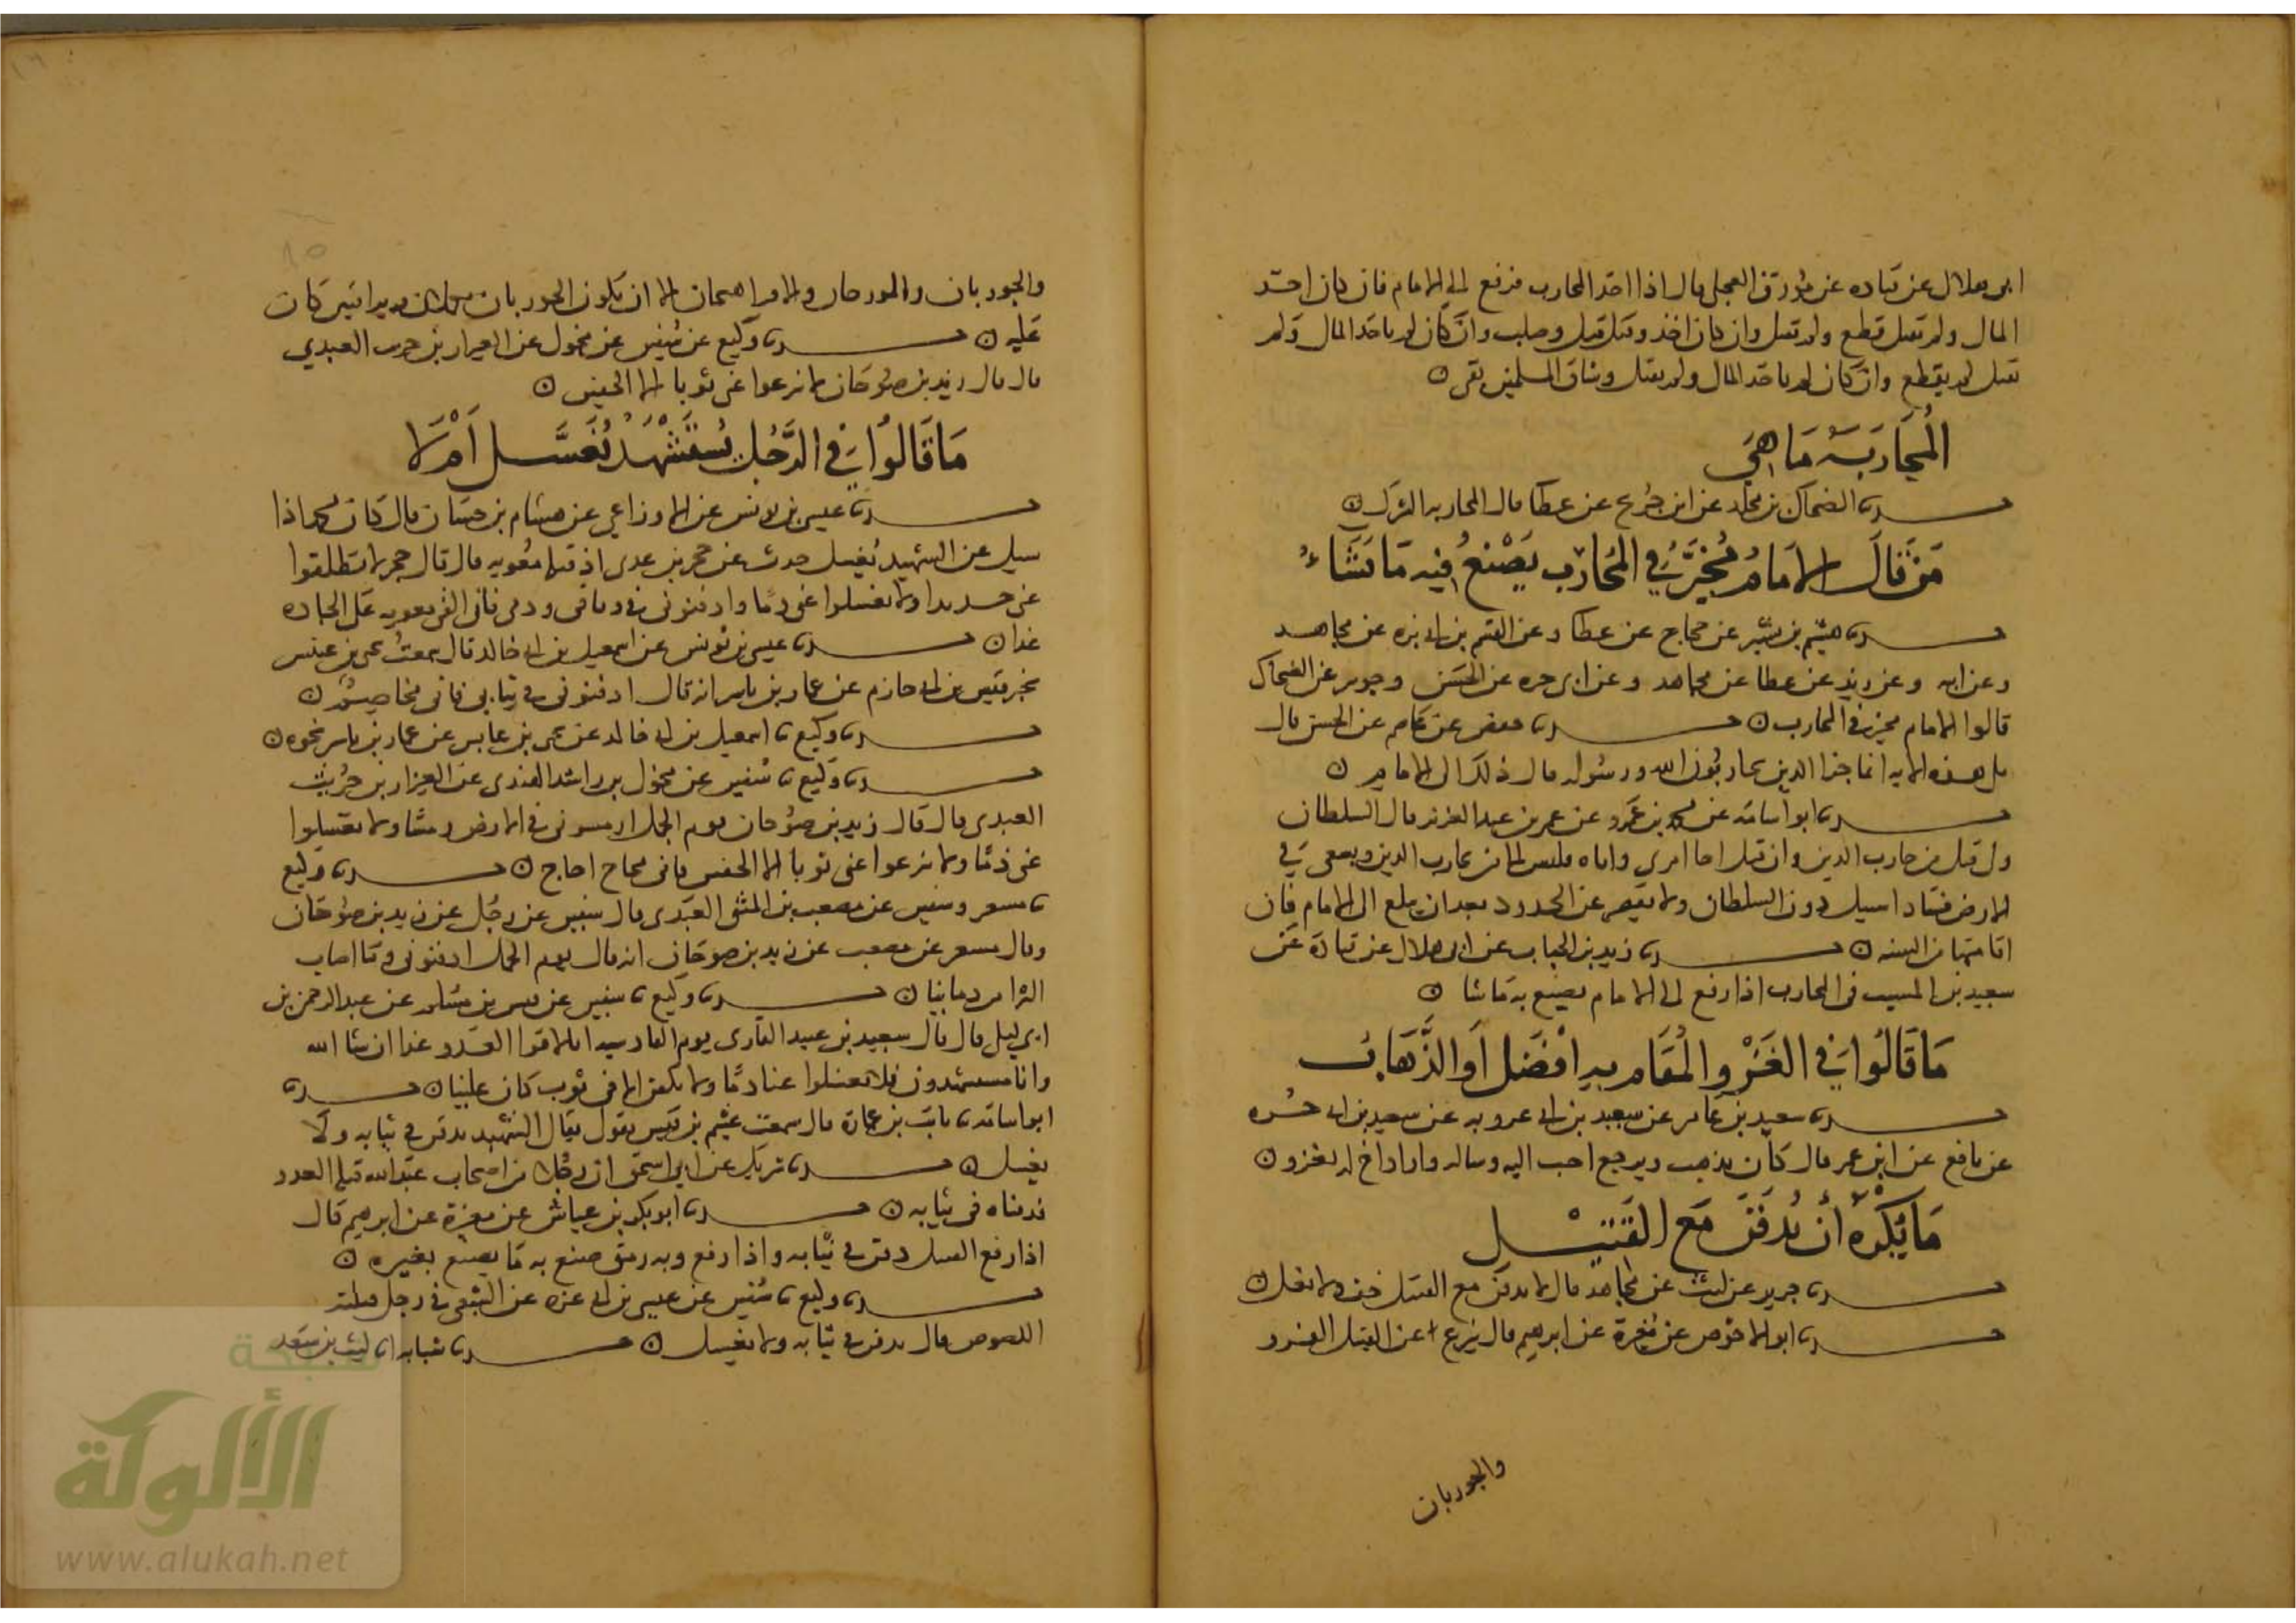 ابى هلال عن قتاده عن مورق العجلى قال اذا اخذ المحارب فرفع الى الامام فان كان اخذ
المال ولم يقتل قطع ولم يقتل وان كان اخذ وقتل قتل وصلب وان كان لم ياخذ المال ولم
يقتل لم يقطع وان كان لم ياخذ المال ولم يقتل وشاق المسلمين نفى ن
المُحَارَبَة مَا هِيَ
حدثنا الضحاك بن مخلد عن ابن جريج عن عطا قال المحاربه الشرك ن
مَن قَالَ الامَامُ مُخَيَّرٌ فِي المُحَارَب يَصْنَعُ فِيه مَا يَشَاءُ
حدثنا هشيم بن بشير عن حجاج عن عطا وعن القسم بن ابى بزه عن مجاهد
وعن ليث عن عطا عن مجاهد وعن ابى حره عن الحسن وجويبر عن الضحاك
قالوا الامام مخير فى المحارب ن حدثنا حفص عن عاصم عن الحسن قال
تلا هذه الايه انما جزا الذين يحاربون الله ورسوله قال ذلك الى الامام ن
حدثنا ابو اسامه عن محمد بن عمرو عن عمر بن عبد العزيز قال السلطان
ولى قتل من حارب الدين وان قتل اخا امرى واباه فليس الى من يحارب الدين ويسعى فى
الارض فسادا سبيل دون السلطان ولا يقصر عن الحدود بعد ان يبلغ الى الامام فان
اقامتها من السنه ن حدثنا زيد بن الحباب عن ابى هلال عن قتادة عن
سعيد بن المسيب فى المحارب اذا رفع الى الامام يصنع به ما شا ن
مَا قَالُوا فِي الغَزْو المُقَام به افْضَل أَو الذَّهَاب
حدثنا سعيد بن عامر عن سعيد بن ابى عروبه عن سعيد بن ابى حره
عن نافع عن ابن عمر قال كان يذهب ويرجع احب اليه وساله واراد اخ له يغزو ن
مَا يُكْرَهُ أن يُدفَن مَع القَتِيل
حدثنا جرير عن ليث عن مجاهد قال لا يدفن مع القتيل خف ولا نعل ن
حدثنا ابو الاحوص عن مغيرة عن ابرهيم قال ينزع عن القتيل الفرو
والجوربان
والجوربان والموزجان والافراهيجان الا ان يكون الجوربان يكملان وترا فيتركان
عليه ن حدثنا وكيع عن سفين عن مخول عن العيزار بن حريث العبدي
قال قال زيد بن صوحان لا تنزعوا عنى ثوبا الا الخفين ن
مَا قَالُوا فِي الرَّجُل يُسْتَشْهَدُ يُغَسَّل أَمْ لا
حدثنا عيسى بن يونس عن الاوزاعي عن هشام بن حسان قال كان محمد اذا
سيل عن الشهيد يُغسل حدث عن حجر بن عدى اذ قتله معويه قال قال حجر لا تطلقوا
عنى حديدا ولا تغسلوا عنى دمًا وادفنونى فى وثاقى ودمى فانى القى معويه على الجاده
غدا ن حدثنا عيسى بن يونس عن اسمعيل بن ابى خالد قال سمعت يحيى بن عبس
يخبر قيس بن ابى حازم عن عمار بن ياسر انه قال ادفنونى فى ثيابى فانى مخاصم ن
حدثنا وكيع ثنا اسمعيل بن ابى خالد عن يحيى بن عابس عن عمار بن ياسر نحوه ن
حدثنا وكيع ثنا سفين عن مخول بن راشد النهدى عن العيزار بن حريث
العبدى قال قال زيد بن صوحان يوم الجمل ارمسونى فى الارض رمسًا ولا تغسلوا
عنى دمًا ولا تنزعوا عنى ثوبا الا الخفين فانى محاج احاج ن حدثنا وكيع
ثنا مسعر وسفين عن مصعب بن المثنى العبدى قال سفين عن رجل عن زيد بن صوحان
وقال مسعر عن مصعب عن زيد بن صوحان انه قال يوم الجمل ادفنونى وما اصاب
الثرا من دماينا ن حدثنا وكيع ثنا سفين عن قيس بن مسلم عن عبد الرحمن بن
ابى ليلى قال قال سعيد بن عبيد القارى يوم القادسيه انا لاقوا العدو غدا ان شا الله
وانا مستشهدون فلا تغسلوا عنا دمًا ولا نكفن الا فى ثوب كان علينا ن حدثنا
ابو اسامه ثنا ثابت بن عمارة قال سمعت غنيم بن قيس يقول يقال الشهيد يدفن فى ثيابه ولا
يغسل ن حدثنا شريك عن ابى اسحق ان رجلا من اصحاب عبد الله قتله العدو
فدفناه فى ثيابه ن حدثنا ابو بكر بن عياش عن مغيرة عن ابرهيم قال
اذا رفع القتيل دفن فى ثيابه واذا رفع وبه رمق صنع به ما يصنع بغيره ن
حدثنا وكيع ثنا سفين عن عيسى بن ابى عزه عن الشعبى فى رجل قتلته
اللصوص قال يدفن فى ثيابه ولا يغسل ن حدثنا شبابه ثنا ليث بن سعد
شبكة
الألوكة
www.alukah.net